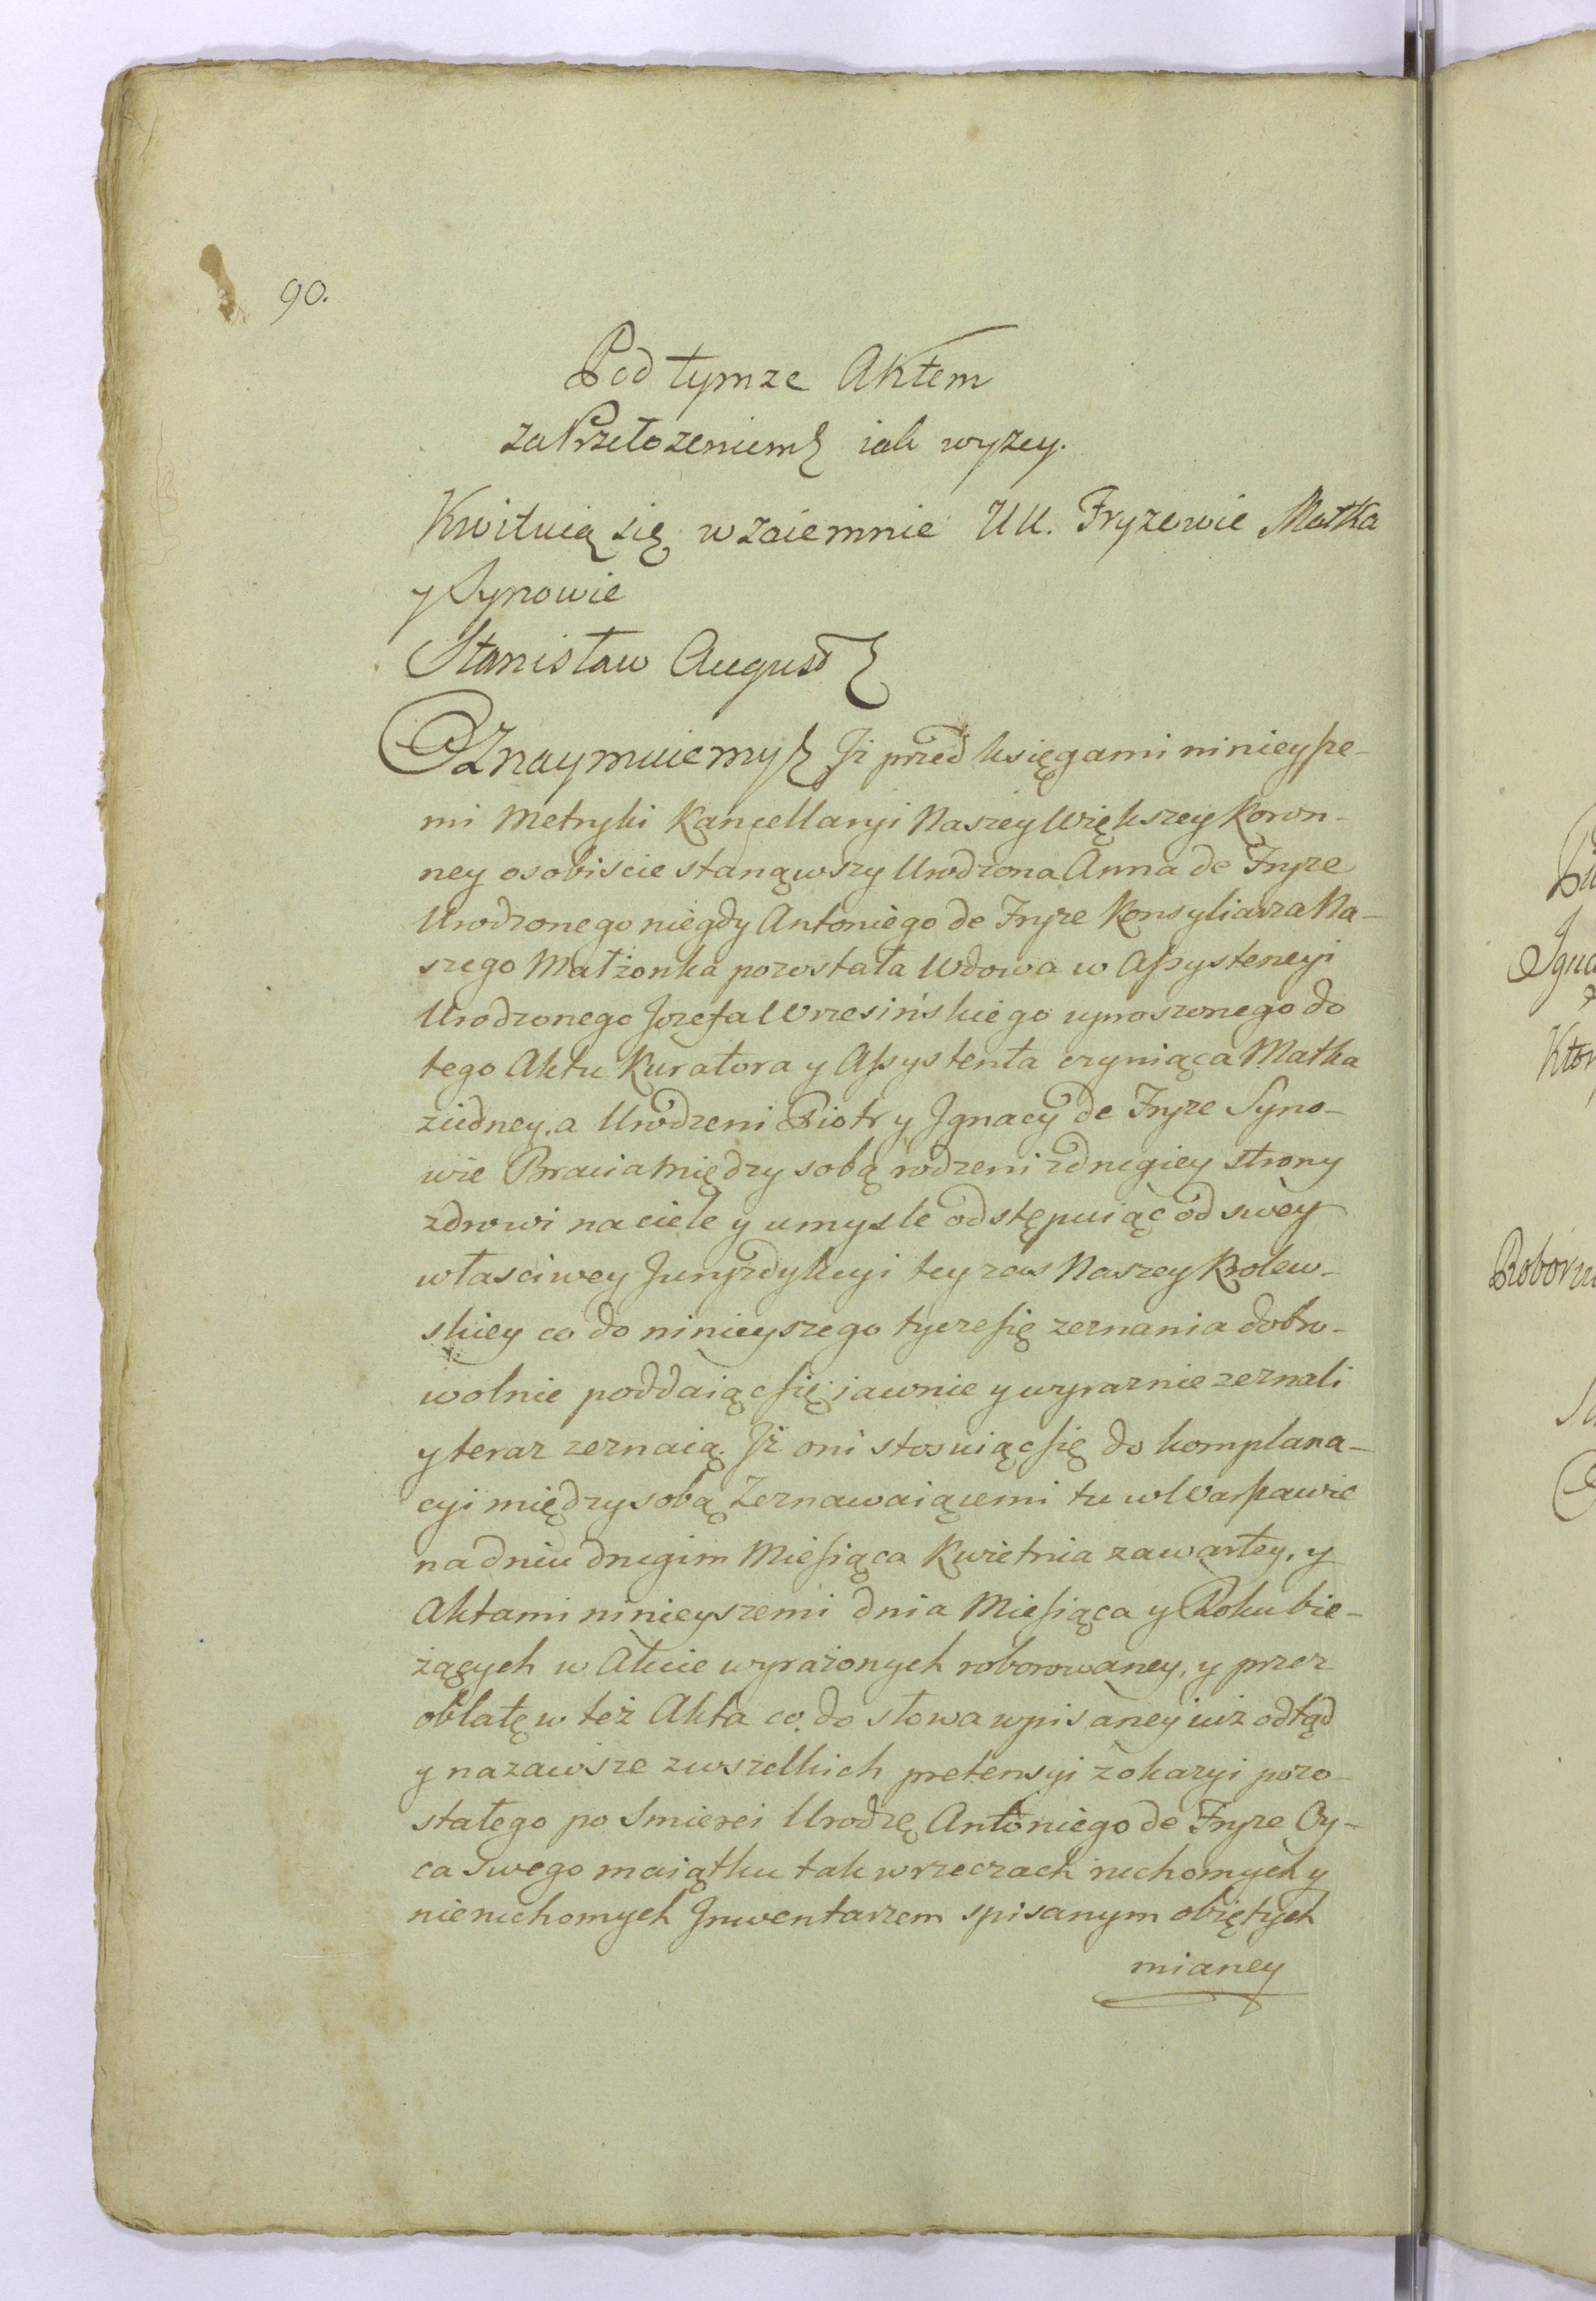 90.
Pod tymze Aktem
za Przełozeniem iak wyzey.
Kwituią się wzaiemnie UU. Fryzowie Matka
y Synowie
Stanisław August
Oznaymuiemy Iż przed księgami ninieysze-
mi Metryki Kancellaryi Naszey Większey Koron-
ney osobiscie stanąwszy Urodzona Anna de Fryze
Urodzonego niegdy Antoniego de Fryze Konsyliarza Na-
szego Małżonka pozostała Wdowa w Assystencyi
Urodzonego Jozefa Wrzesińskiego uproszonego do
tego Aktu Kuratora y Assystenta czyniąca Matka
ziedney. a Urodzeni Piotr y Ignacy de Fryze Syno-
wie Bracia między sobą rodzeni zdrugiey strony
zdrowi na ciele y umysle odstępuiąc od swey
własciwey Juryzdykcyi tey zas Naszey Krolew-
skiey co do ninieyszego tycze się zeznania dobro-
wolnie poddaiąc się iawnie y wyraznie zeznali
y teraz zeznaią. Iż oni stosuiąc się do komplana-
cyi między sobą Zeznawaiącemi tu w Warszawie
na dniu drugim Miesiąca Kwietnia zawartey, y
Aktami ninieyszemi dnia Miesiąca y Roku bie-
żących w Akcie wyrażonych roborowaney, y przez
oblatę w też Akta co do słowa wpisaney iuż odtąd
y nazawsze zwszelkich pretensyi z okazyi pozo-
stałego po Smierci Urodzę Antoniego de Fryze Oy-
ca Swego maiątku tak w rzeczach ruchomych y
nieruchomych Inwentarzem spisanym obiętych
mianey